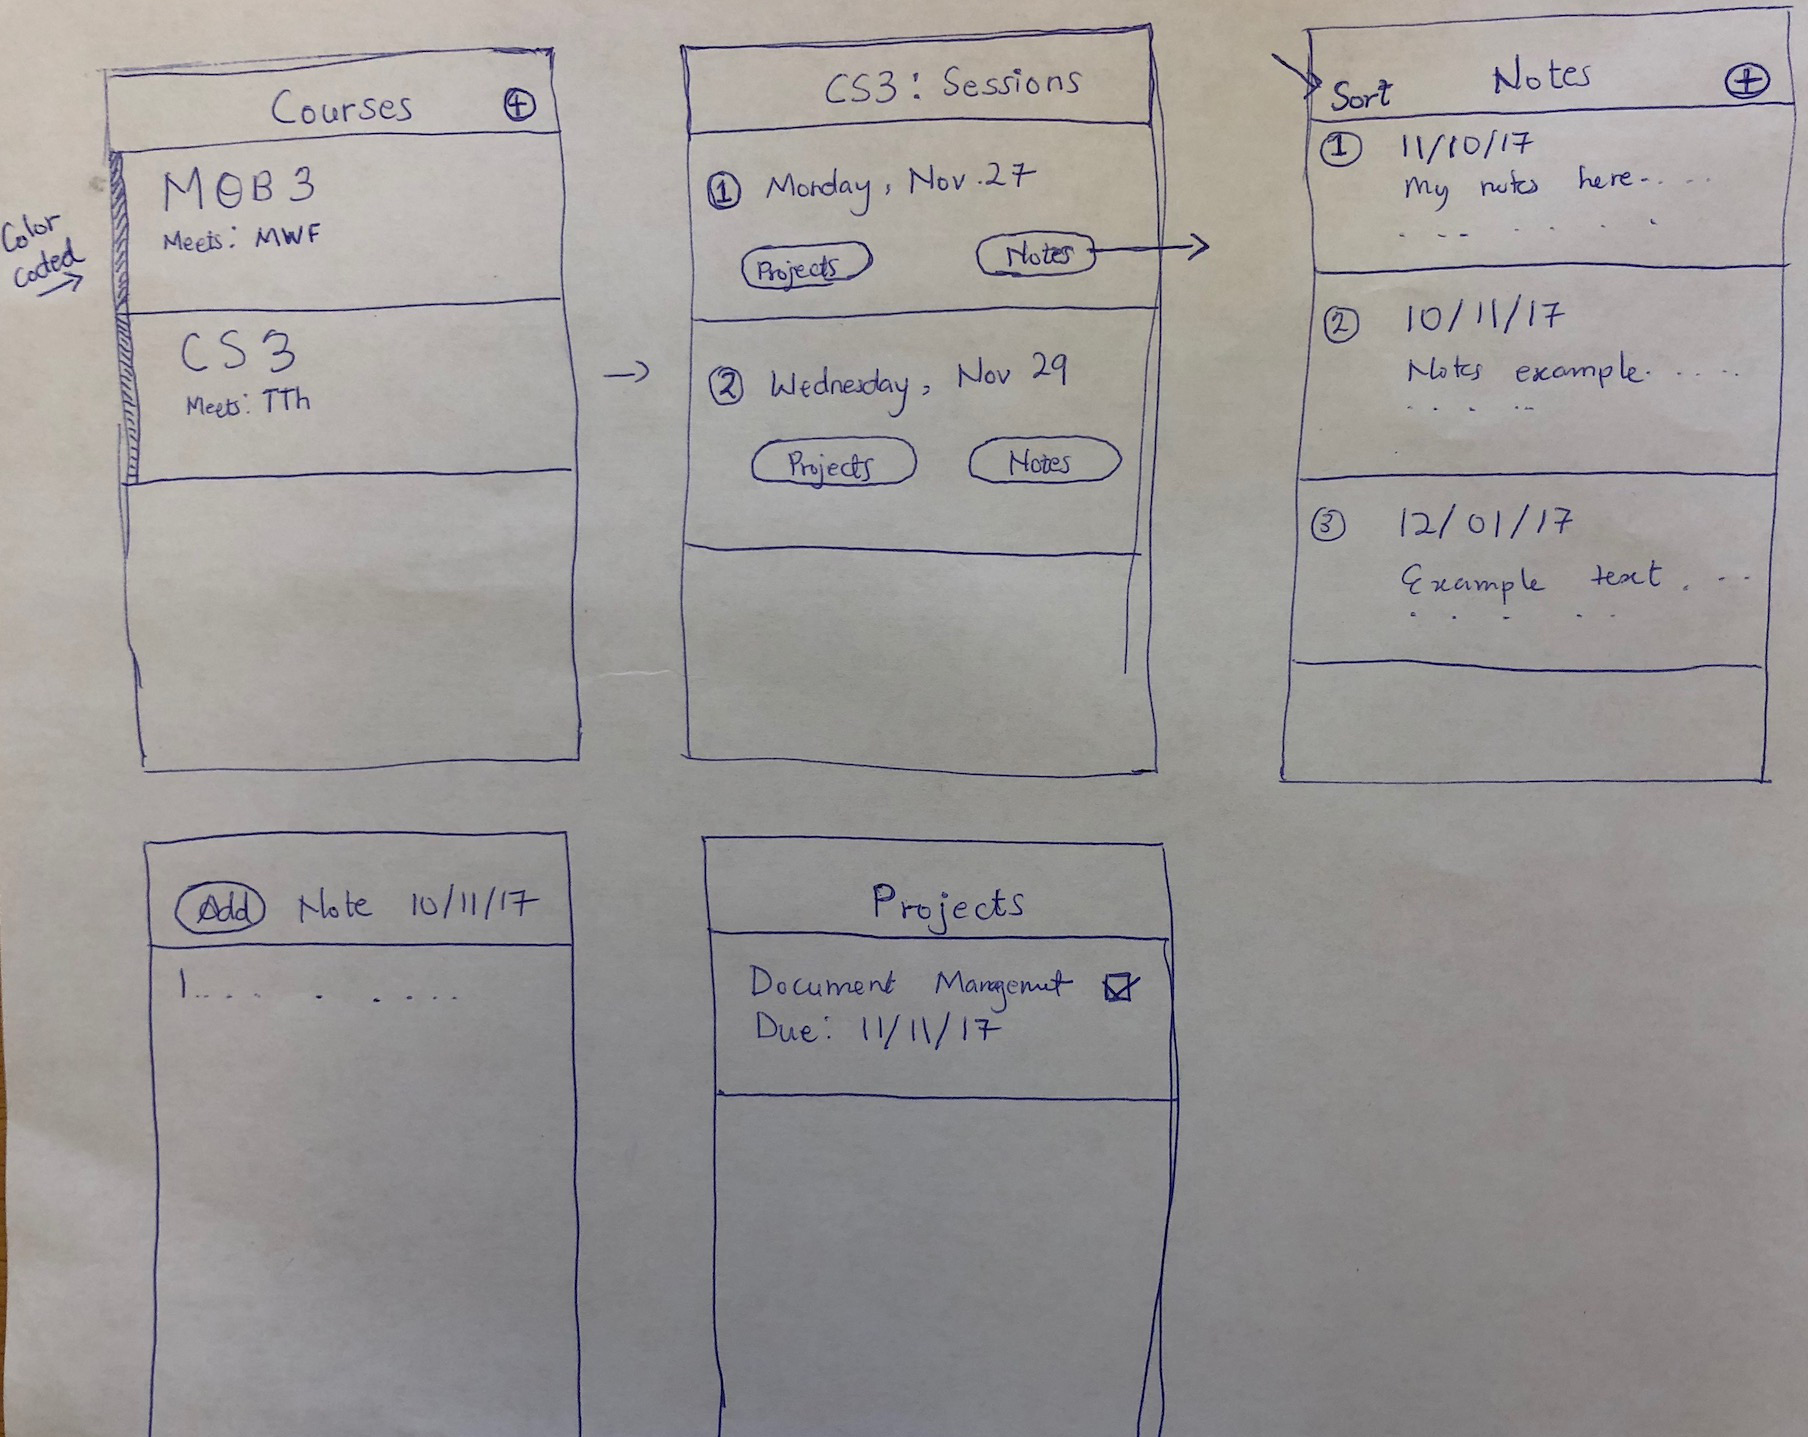 Courses +
MOB3
Meets: MWF
Color
coded
CS3
Meets: TTh
CS3: Sessions
1 Monday, Nov. 27
Projects Notes
2 Wednesday, Nov 29
Projects Notes
Sort Notes +
1 11/10/17
My notes here-. . .
2 10/11/17
Notes example. . . . .
3 12/01/17
Example text . - -
Add Note 10/11/17
1... . . . . . . .
Projects
Document Mangemut
Due: 11/11/17